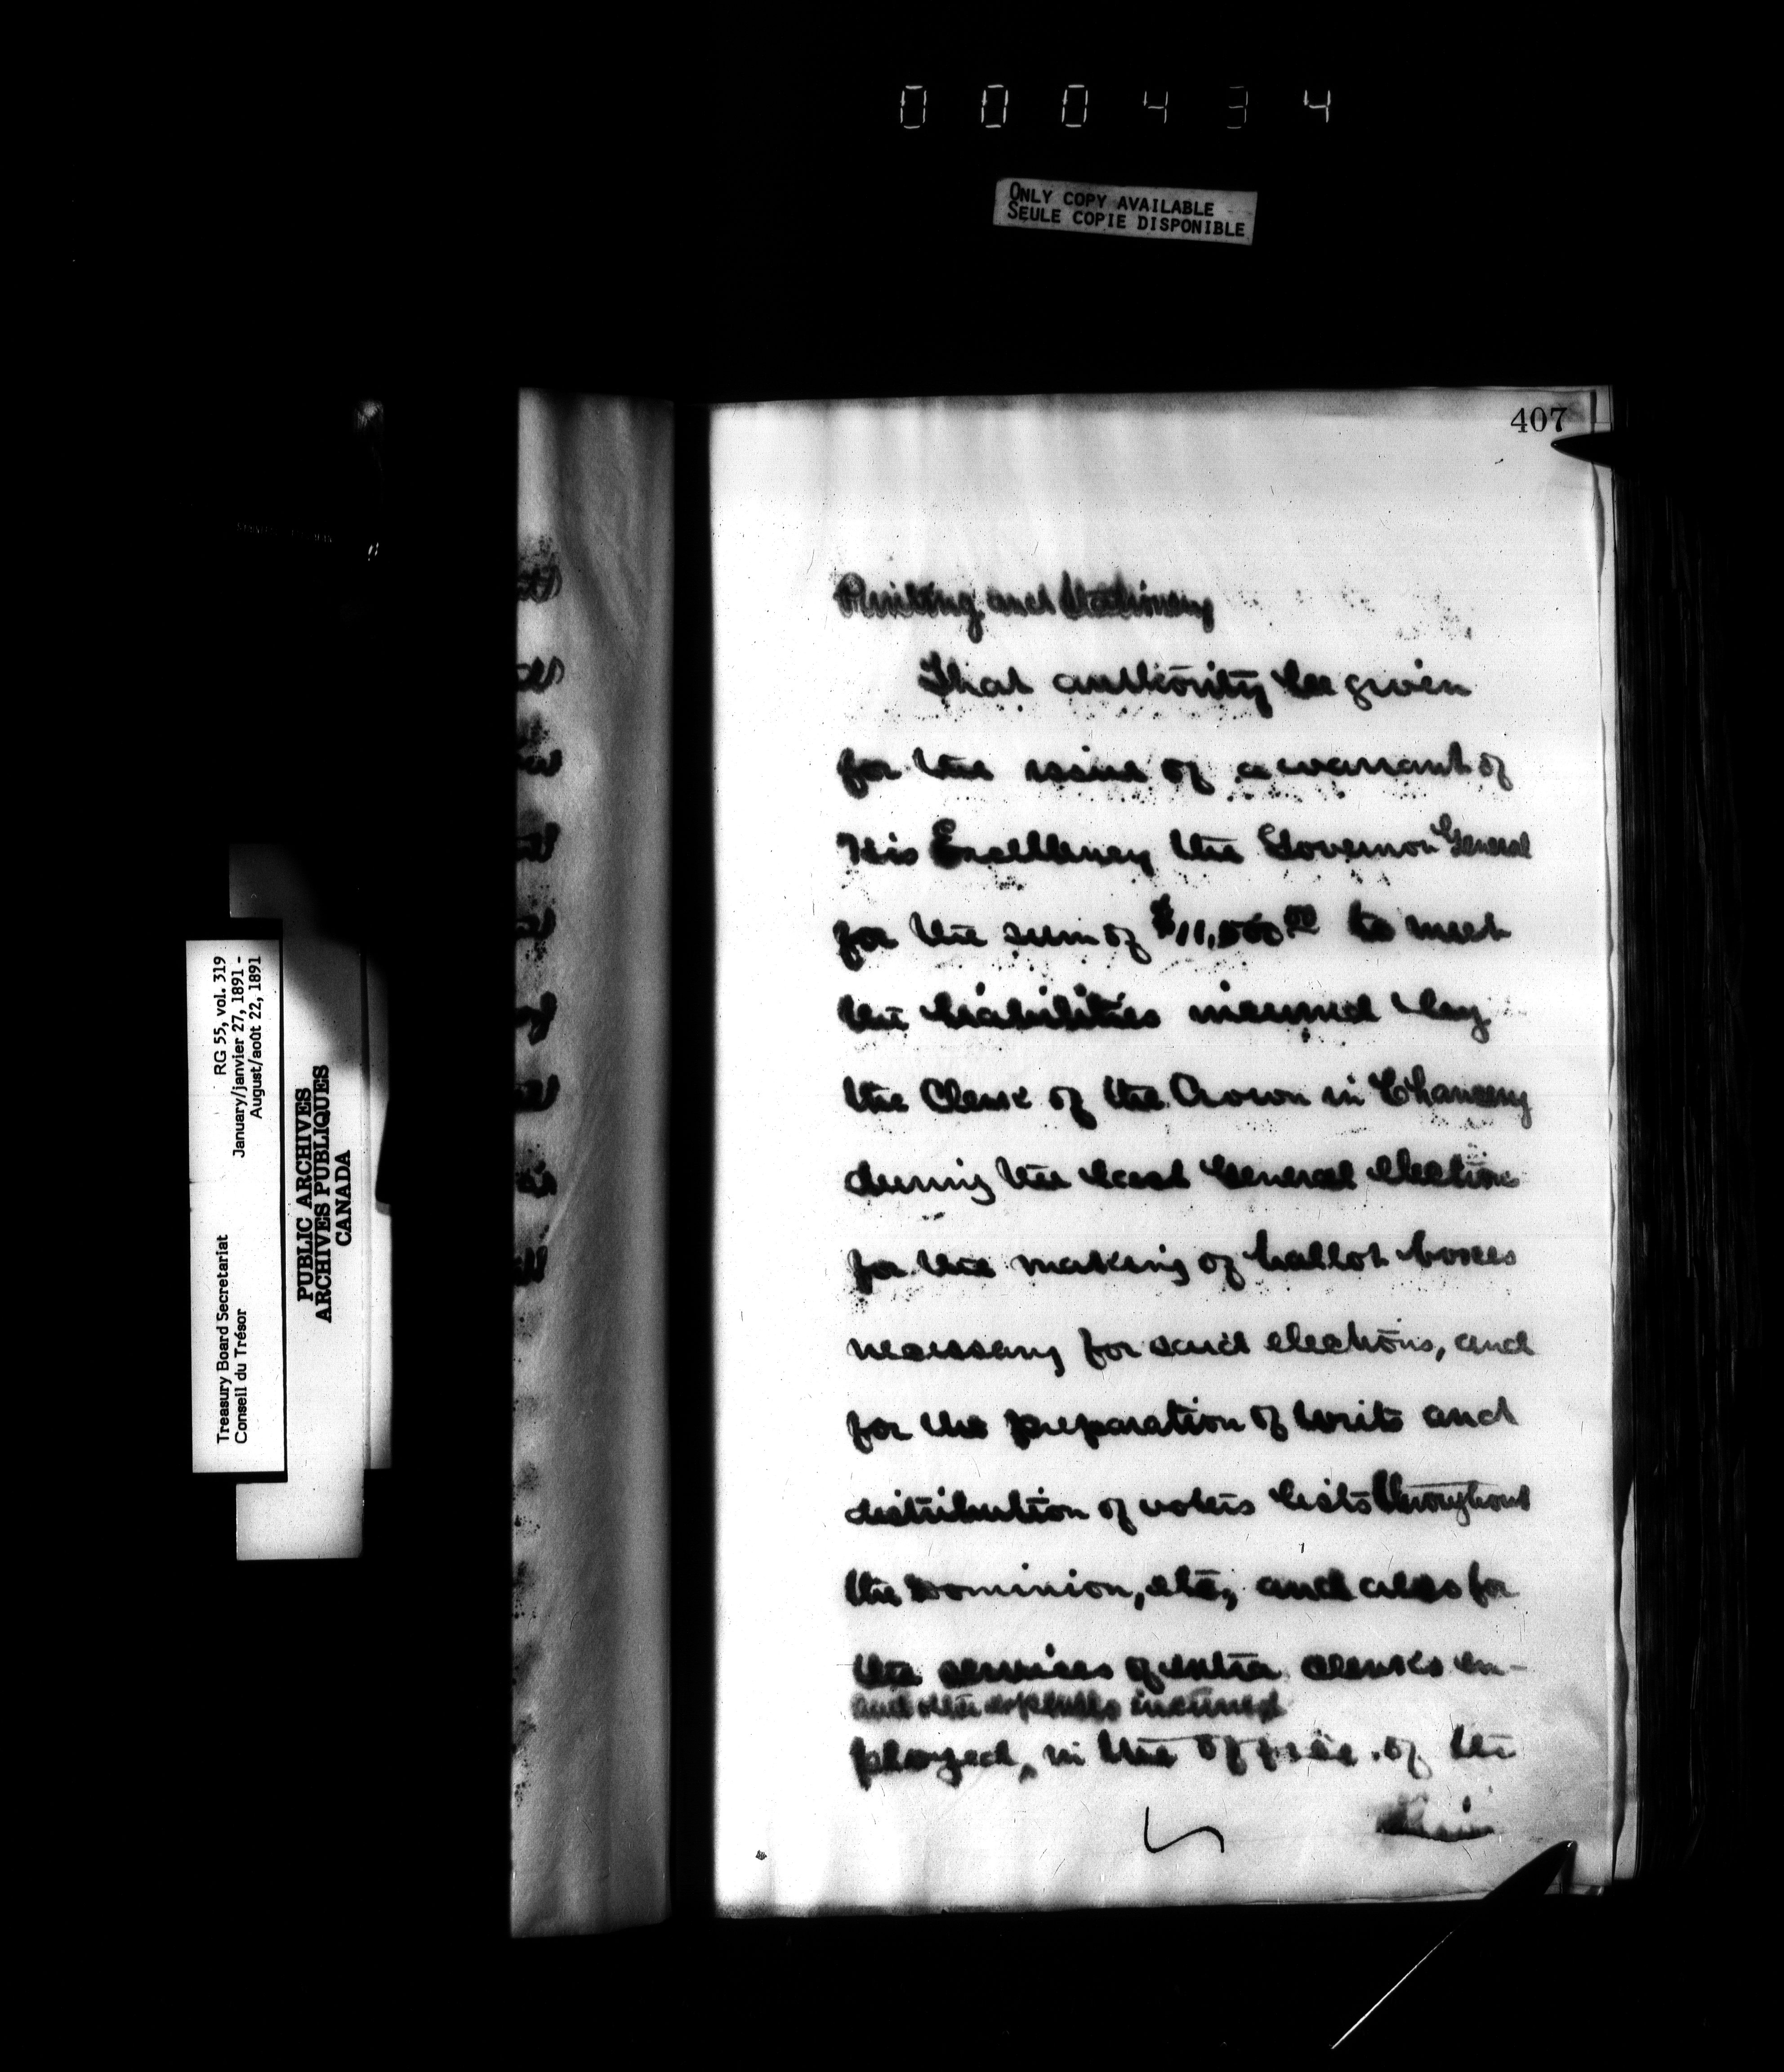 000434
ONLY COPY AVAILABLE
SEULE COPIE DISPONIBLE
407
Printing and Stationery
That authority be given
for the issue of a warrant of
His Excellency the Governor General
for the sum of $11,000.00 to meet
the liabilities incurred by
the Clerk of the Crown in Chancery
during the last General Elections
for the making of ballot boxes
necessary for said elections, and
for the preparation of writs and
distribution of voters lists throughout
the Dominion, etc, and also for
the services of extra clerks em-
and other expenses incurred
ployed, in the office of the
RG 55, vol. 319
January/janvier 27, 1891 -
August/août 22, 1891
Treasury Board Secretariat
Conseil du Trésor
PUBLIC ARCHIVES
ARCHIVES PUBLIQUES
CANADA